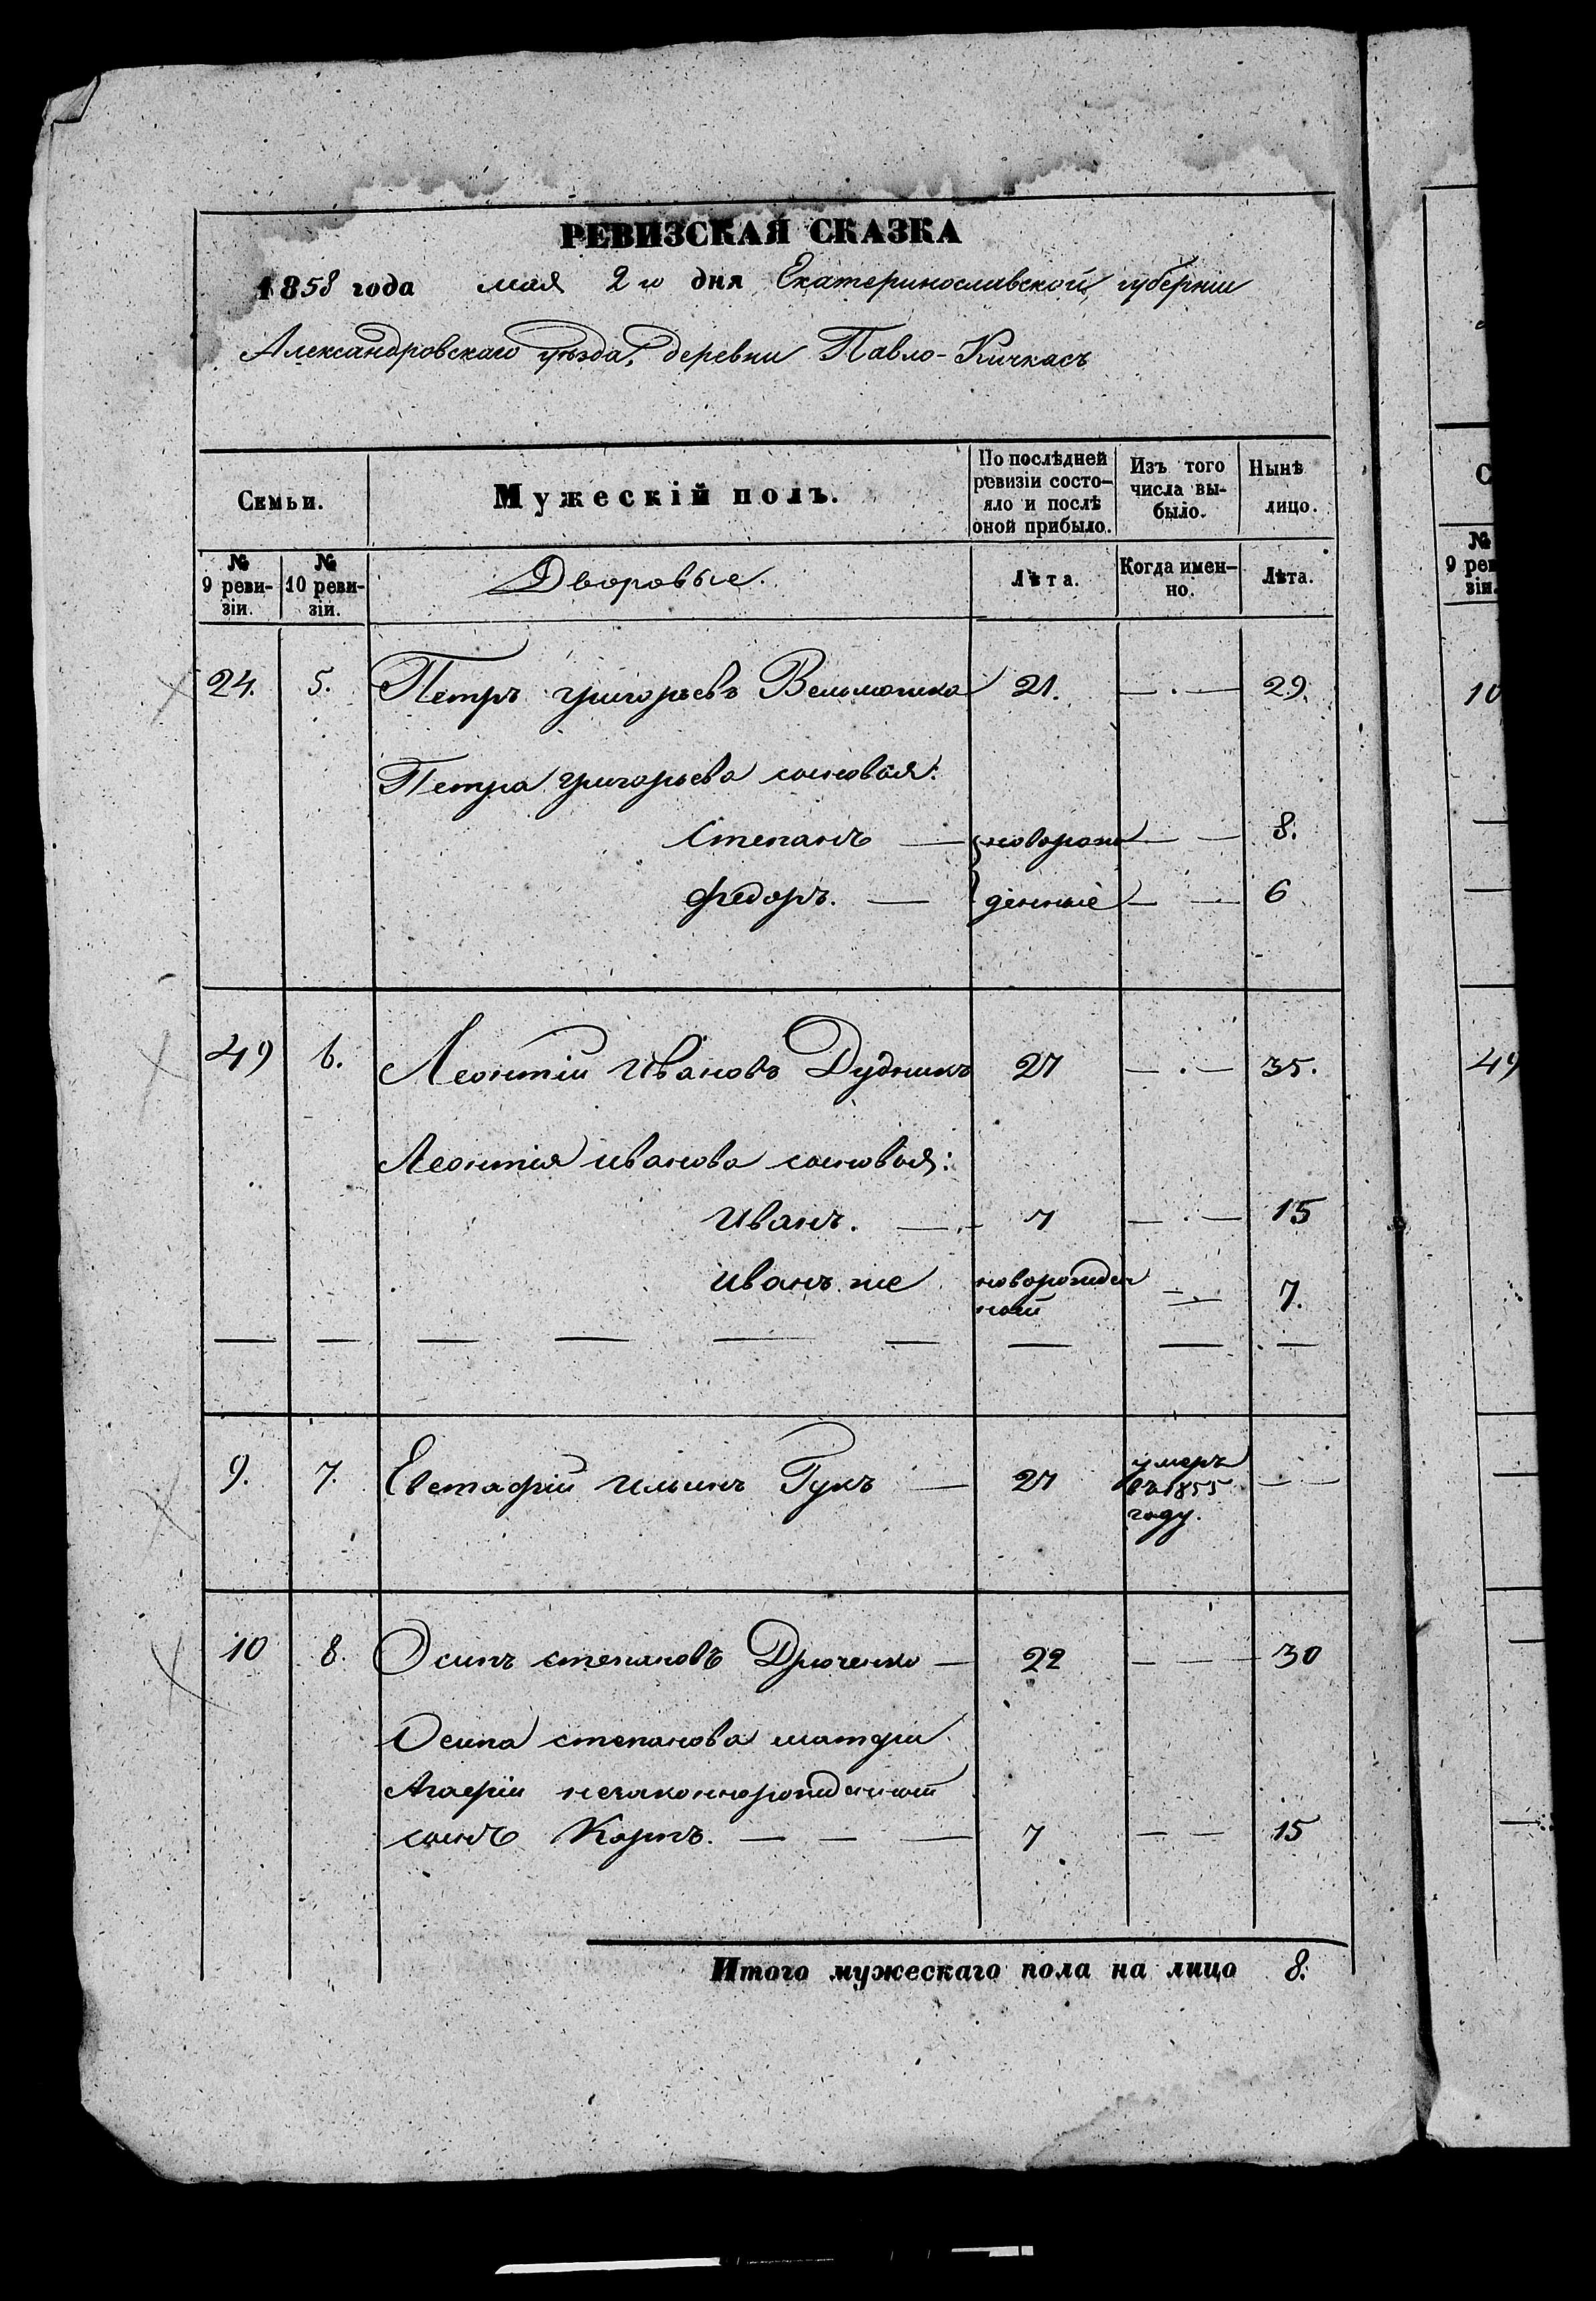 РЕВИЗСКАЯ СКАЗКА
1858 года мая 2го дня Екатеринославской губерніи
Александровскаго уѣзда, деревни Павло-Кичкасъ
Семьи.
Мужескій полъ.
По послѣдней ревизіи состо-яло и послѣ оной прибыло.
Изъ того числа вы-было.
Нынѣ лицо.
№ 9 реви-зіи.
№ 10 реви-зіи.
Дворовые.
Лѣта.
Когда имен-но.
Лѣта.
24. 5. Петръ григорьевъ 21. — . — 29.
Петра григорьева сыновья:
Степанъ — новорож — — 8.
федоръ. — денные — — 6
49 6. Леонтій Ивановъ Дудникъ 27 — . — 35.
Леонтія иванова сыновья:
Иванъ. — 7 — . — 15
Иванъ же новорожден ный — 7.
— — — — — — — — —
9. 7. Евстафій Ильинъ Гукъ — 27 умеръ въ 1855 году. — —
10 8. Осипъ степановъ Дрюченко — 22 — — — 30
Осипа степанова матери
Агафіи незаконнорожденный
сынъ Карпъ. — — — 7 — — 15
Итого мужескаго пола на лицо 8.
С
№ 9 рев зіи.
10
49